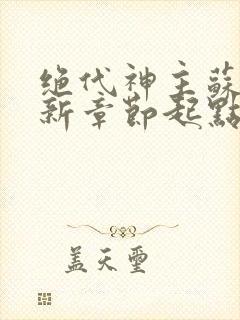 绝代神主蘇
新章節起點
蓋天璽